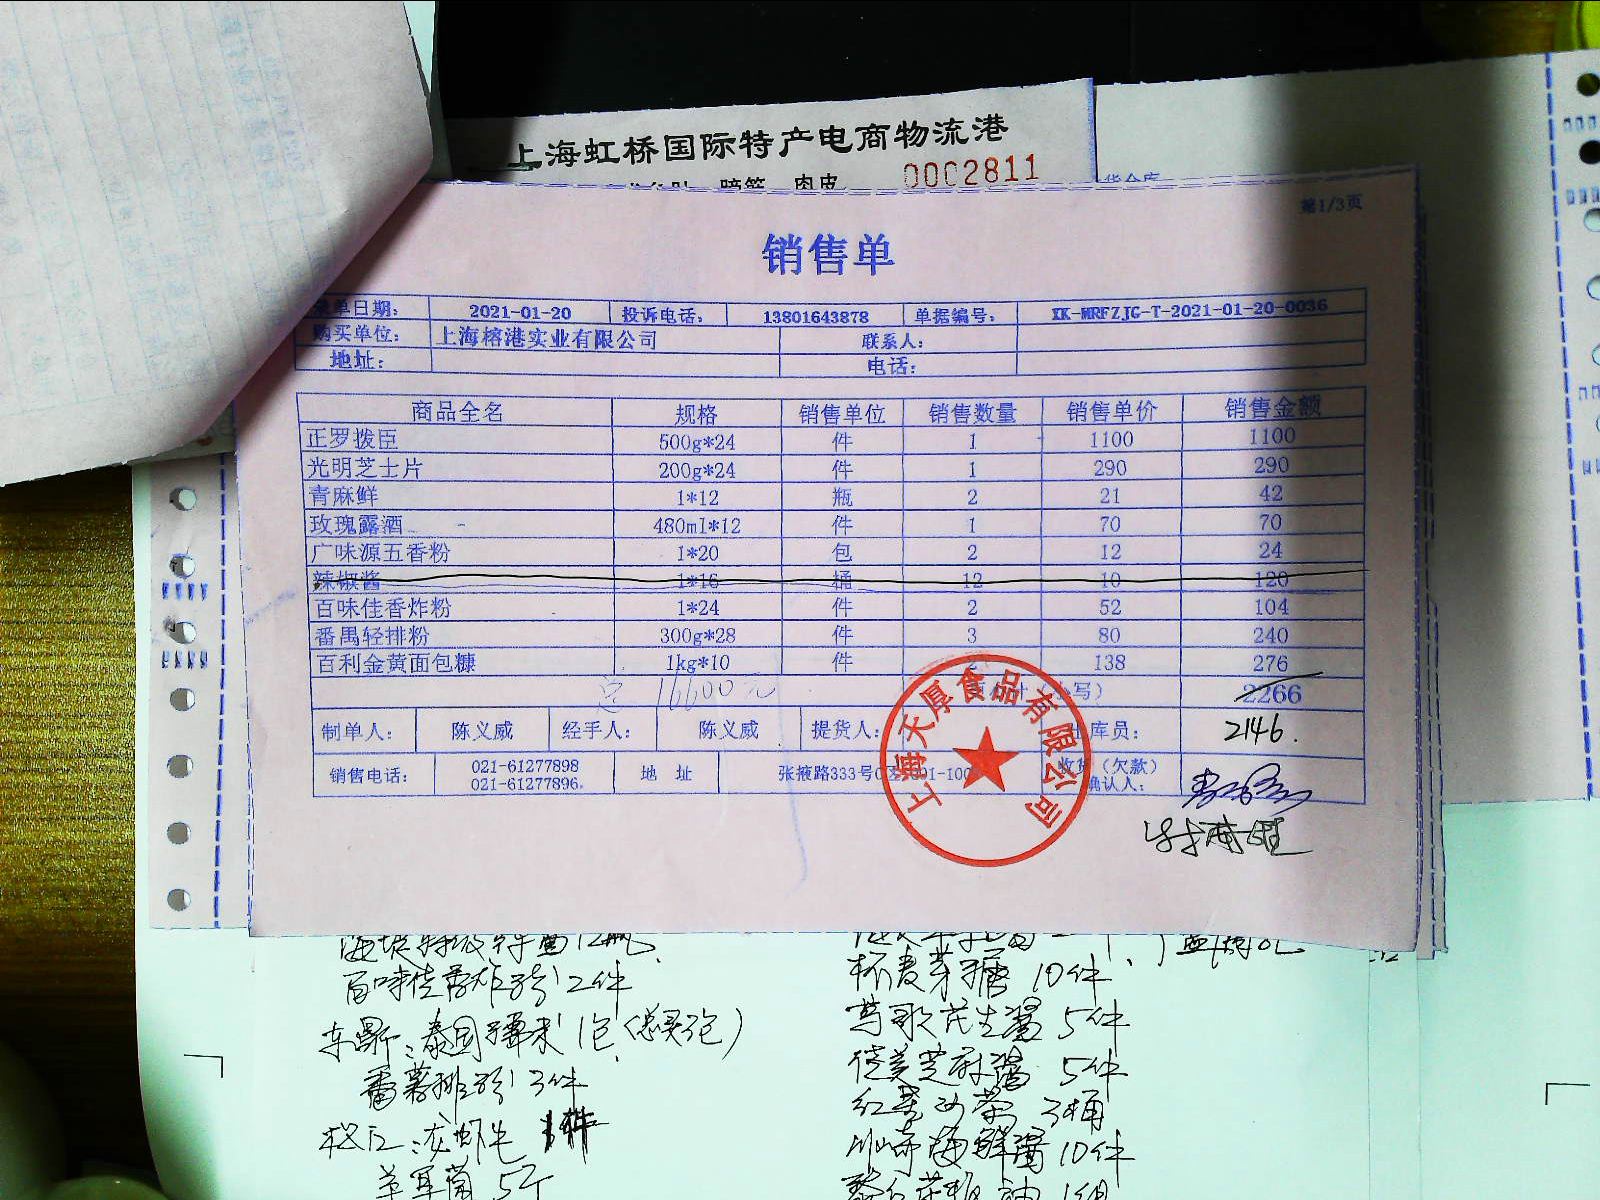 上海虹桥国际特产电商物流港
0002811
第1/3页
销售单
单日期: 2021-01-20 投诉电话: 13801643878 单据编号: XK-MRFZJG-T-2021-01-20-0036
购买单位: 上海榕港实业有限公司 联系人:
地址: 电话:
商品全名 规格 销售单位 销售数量 销售单价 销售金额
正罗拨臣 500g*24 件 1 1100 1100
光明芝士片 200g*24 件 1 290 290
青麻鲜 1*12 瓶 2 21 42
玫瑰露酒 480ml*12 件 1 70 70
广味源五香粉 1*20 包 2 12 24
辣椒酱 1*16 桶 12 10 120
百味佳香炸粉 1*24 件 2 52 104
番禺轻排粉 300g*28 件 3 80 240
百利金黄面包糠 1kg*10 件 2 138 276
总 16600元 2266
制单人: 陈义威 经手人: 陈义威 提货人: 库员: 2146.
销售电话: 021-61277898 021-61277896. 地 址 张掖路333号 收货(欠款)确认人:
上海天厚食品有限公司
百味佳香炸粉 2件 杯麦芽糖 10件
泰国糯米 1包 5件
番薯排粉 3件 佳美芝麻酱 5件
松江: 3桶
海鲜酱 10件
草耳菌 5斤